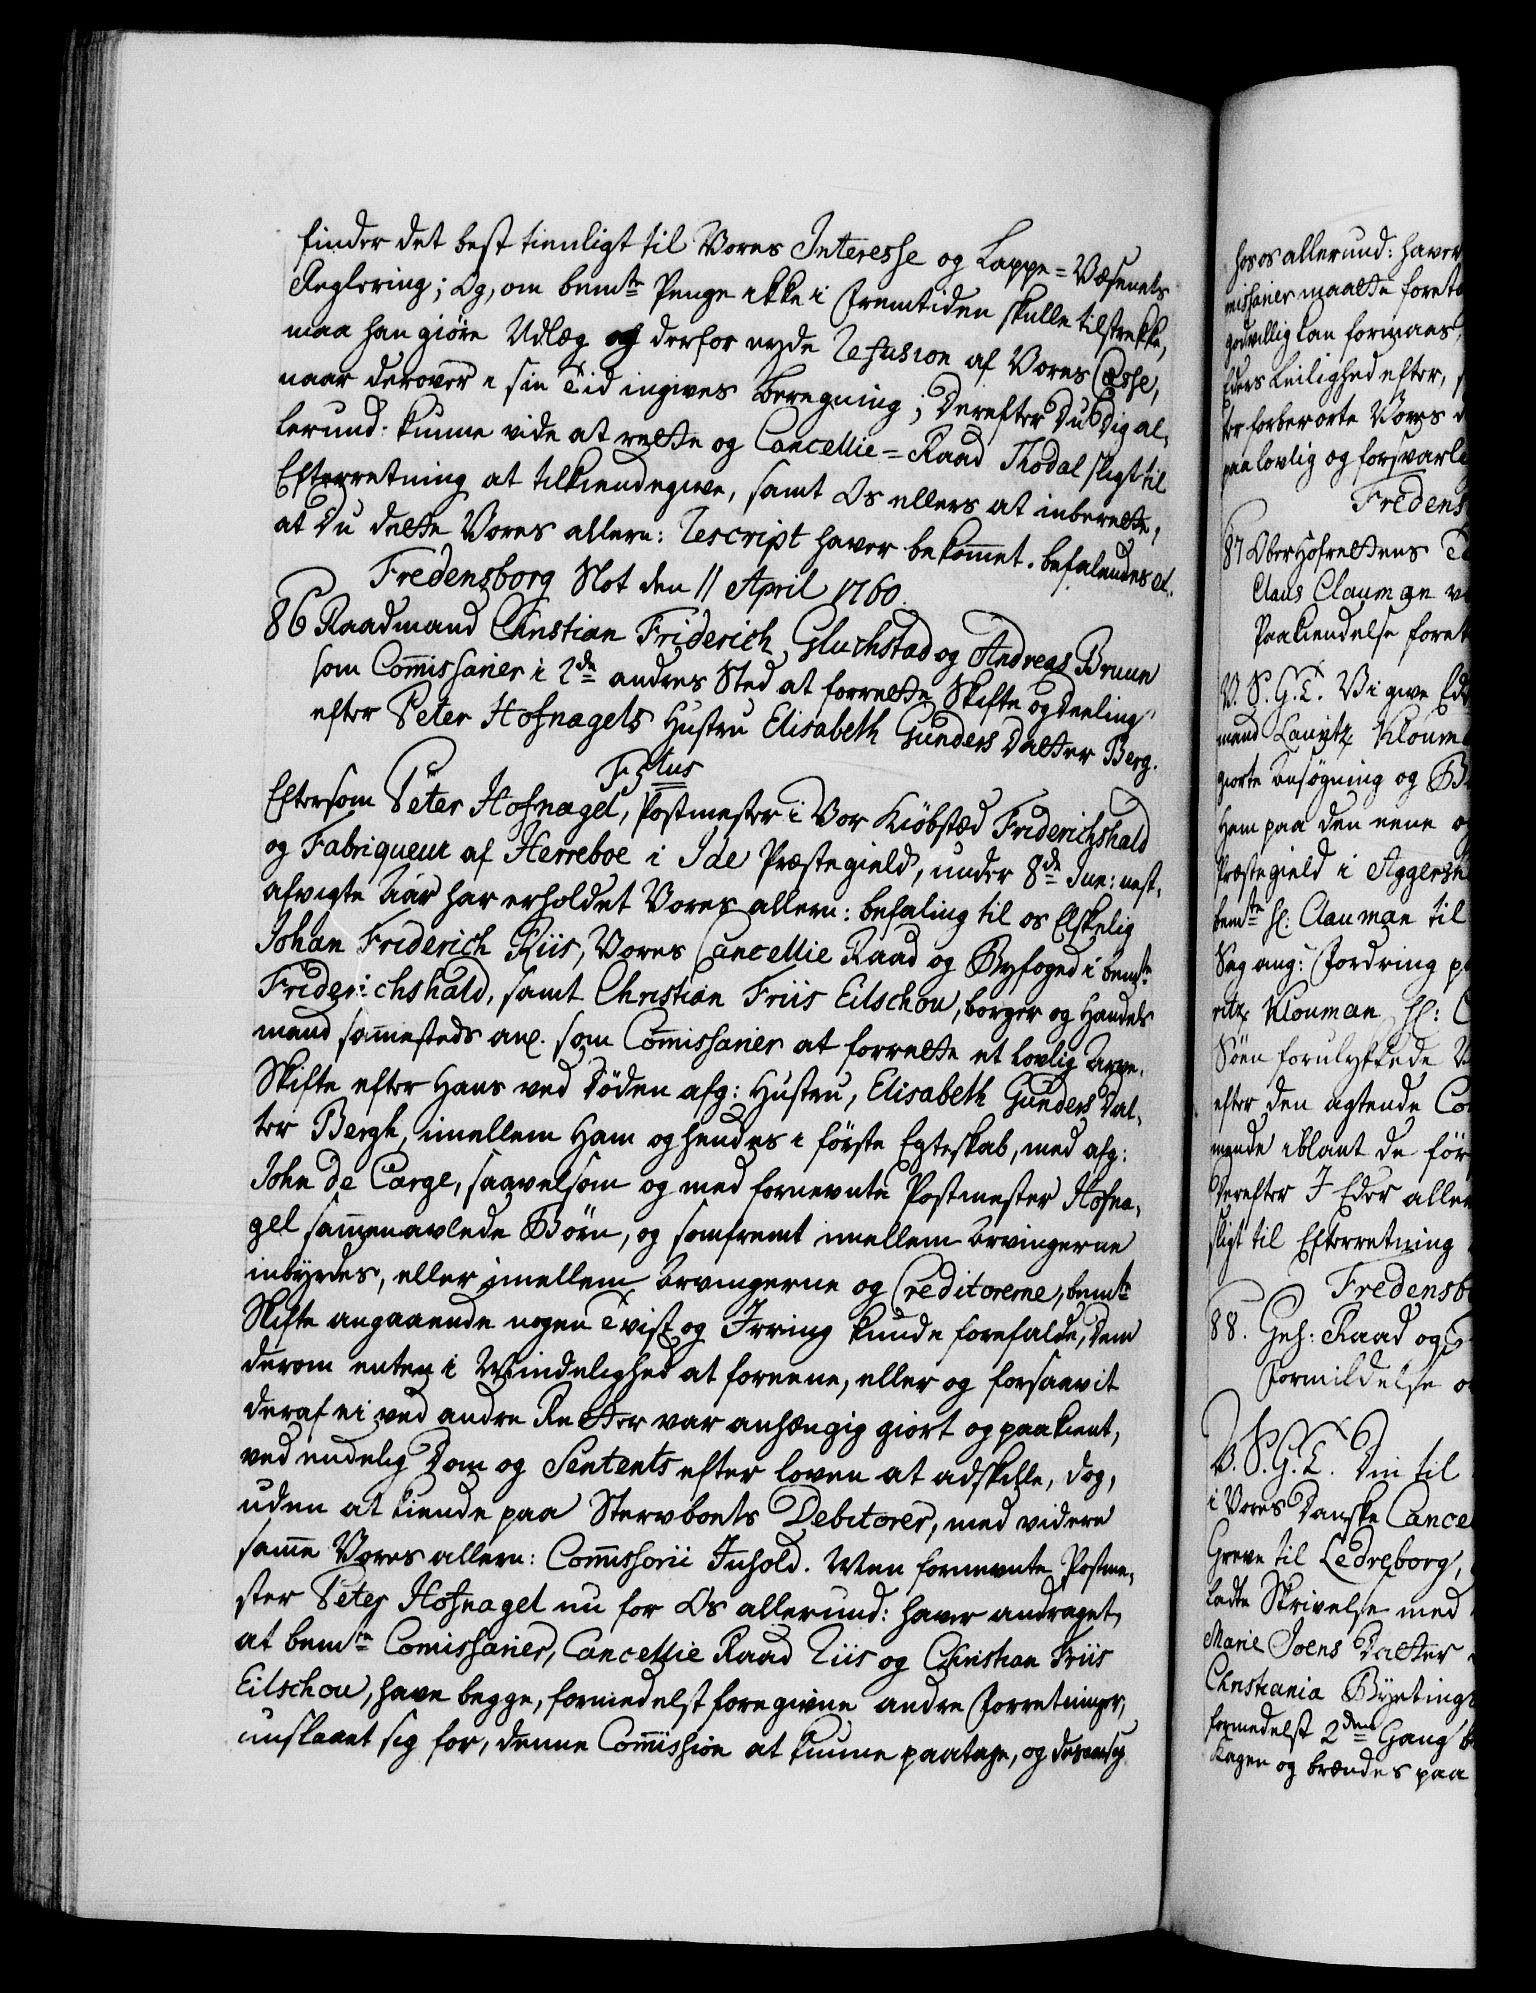 finder det best tienligt til Vores Interesse og Lappe=Væsenets
Reglering; Og, om bemte Penge ikke i fremtiden skulle tilstrekke,
maa han giøre Udlæg og derfor nyde Refusion af Vores Casse,
naar derover i sin Tid ingives beregning; Derefter Du Dig al,
lerund: kunne vide at rette og Cancellie=Raad Thodal sligt til
Efterretning at tilkiendegive, samt Os ellers at inberette,
at Du dette Vores allern: Rescript haver bekommet. befalendes et.
Fredensborg Slot den 11 April 1760.
86 Raadmand Christian Friderich Gluchstad og Andreas Bruun
som Commissarier i 2de andres Sted at forrette Skifte og Deeling
efter Peter Hofnagels Hustru Elisabeth Gunders Datter Berg.
F. 5tus
Eftersom Peter Hofnagel, Postmester i Vor Kiøbstæd Friderichshald
og Fabriqueur af Herreboe i Ide Præstegield, under 8de Jun: nest,
afvigte Aar har erholdet Vores allern: befaling til os Elskelig
Johan Friderich Riis, Vores Cancellie Raad og Byfoged i bemte
Friderichshald, samt Christian Friis Eilschou, borger og Handels
mand sammesteds an. som Commissarier at forrette et lovlig Arve,
Skifte efter Hans ved Døden afg: Hustru, Elisabeth Gunders Dat,
ter Bergh, imellem Ham og hendes i første Egteskab, med afg:
John de Carge, saavelsom og med fornevnte Postmester Hofna,
gel sammenavlede Børn, og somfremt imellem Arvingerne
inbyrdes, eller imellem Arvingerne og Creditorerne, bemte
Skifte angaaende nogen Tvist og Irring kunde forefalde, Dem
derom enten i Mindelighed at foreene, eller og forsaavit
deraf ei ved andre Retter var anhængig giort og paakient,
ved endelig Dom og Sentents efter loven at adskille, dog,
uden at kiende paa Stervboets Debitorer, med videre
samme Vores allern: Commissorii Inhold. Men fornevnte Postme,
ster Peter Hofnagel nu for Os allerund: haver andraget,
at bemte Comissarier, Cancellie Raad Riis og Christian Friis
Eilschou, have begge, formedelst foregivne andre Forretninger,
unslaaet sig for, denne Commission at kunne paatage, og
hos os allerund: haver
missarier maatte foret
godvillig kan formaaes,
Eders Leilighed efter,
ter forberørte Vores
paa lovlig og forsvarl
Fredens
87 OberHofrettens
Claus Clauman
Paakiendelse foret
V. S. G. T. Vi give Ed
mand Lauritz Kloum
giorte ansøgning og B
Ham paa den eene o
Præstegield i Aggersh
bemte Sl: Clauman til
Sag ang: fordring p
ritz Klouman, Sl:
Søn forulykkede
efter den agtende Co
mænde iblant de før
Derefter I Eder aller
sligt til Efterretning
Fredensb
88. Geh: Raad og
formildelse o
V. S. G. T. Din til
i Vores Danske Cance
Greve til Ledreborg,
ladte Skrivelse med
Marie Joens Datter
Christiania Byeting
formedelst 2den Gang
Kagen og brændes paa